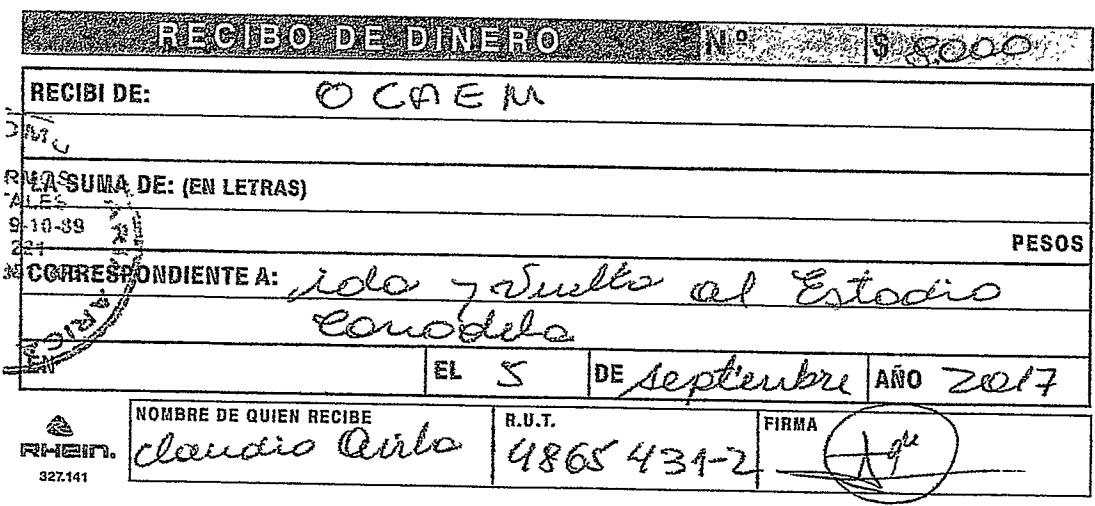 RECIBO DE DINERO Nº $ 8.000
RECIBI DE: OCAEM
LA SUMA DE: (EN LETRAS)
9-10-89
221
PESOS
CORRESPONDIENTE A: ida y Vuelta al Estadio
Canadela
ARICA
EL 5 DE septiembre AÑO 2017
RHEIN.
327.141
NOMBRE DE QUIEN RECIBE
Claudio Avila
R.U.T.
4865431-2
FIRMA